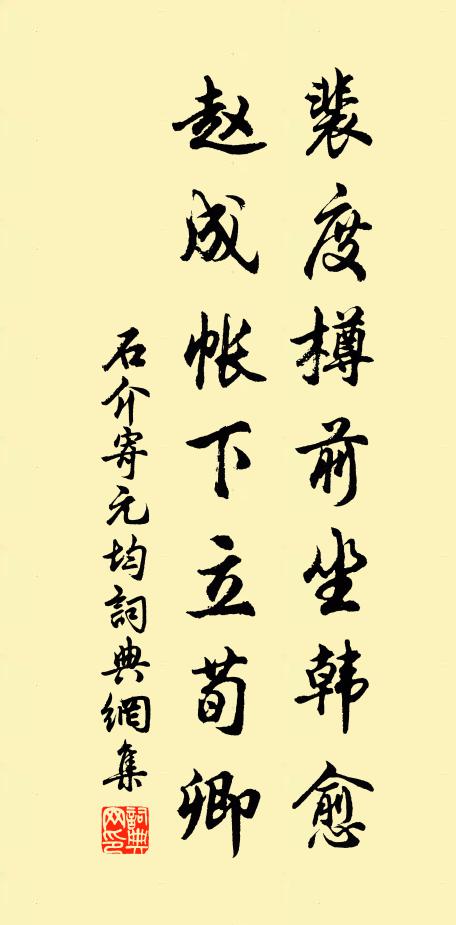 裴度樽前坐韩愈
赵成帐下立荀卿
石介寄元均詞典網集
詞典网印